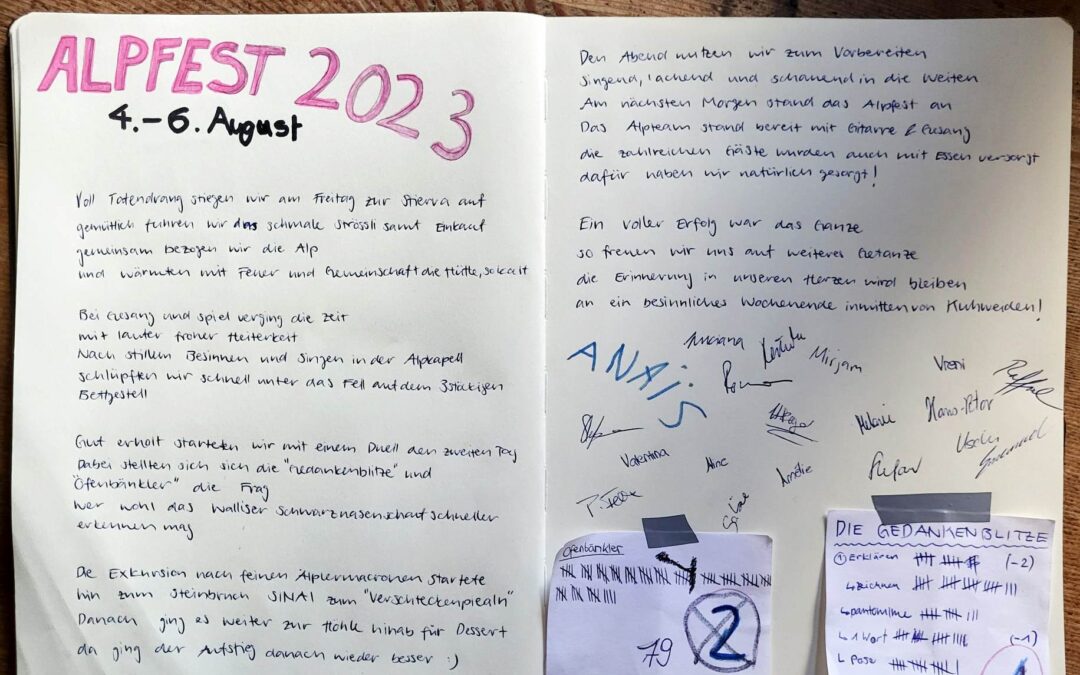 ALPFEST 2023
4.-6. August
Voll Tatendrang stiegen wir am Freitag zur Stierva auf
gemütlich fuhren wir das schmale Strössli samt Einkauf
gemeinsam bezogen wir die Alp
und wärmten mit Feuer und Gemeinschaft die Hütte, so kalt
Bei Gesang und Spiel verging die Zeit
mit lauter froher Heiterkeit
Nach stillem Besinnen und Singen in der Alpkapell
schlüpften wir schnell unter das Fell auf dem 3stöckigen
Bettgestell
Gut erholt starteten wir mit einem Duell den zweiten Tag
Dabei stellten sich sich die "Gedankenblitze" und
"Ofenbänkler" die Frag
wer wohl das Walliser Schwarznasenschaf schneller
erkennen mag
Die Exkursion nach feinen Älplermacronen startete
hin zum Steinbruch SINAI zum "Versteckenpieäln"
Danach ging es weiter zur Höhle hinab für Dessert
da ging der Aufstieg danach wieder besser :)
Den Abend nutzen wir zum Vorbereiten
singend, lachend und schauend in die Weiten
Am nächsten Morgen stand das Alpfest an
Das Alpteam stand bereit mit Gitarre & Gesang
die zahlreichen Gäste wurden auch mit Essen versorgt
dafür haben wir natürlich gesorgt!
Ein voller Erfolg war das Ganze
so freuen wir uns auf weiteres Getanze
die Erinnerung in unseren Herzen wird bleiben
an ein besinnliches Wochenende inmitten von Kuhweiden!
ANAiS
Mirjam
Vreni
Melanie
Hans-Peter
Valentina
Aline
Amélie
Stefan
Ofenbänkler
79
2
DIE GEDANKENBLITZE
① Erklären (-2)
↳ zeichnen
↳ pantomime
↳ 1 Wort (-1)
↳ Pose